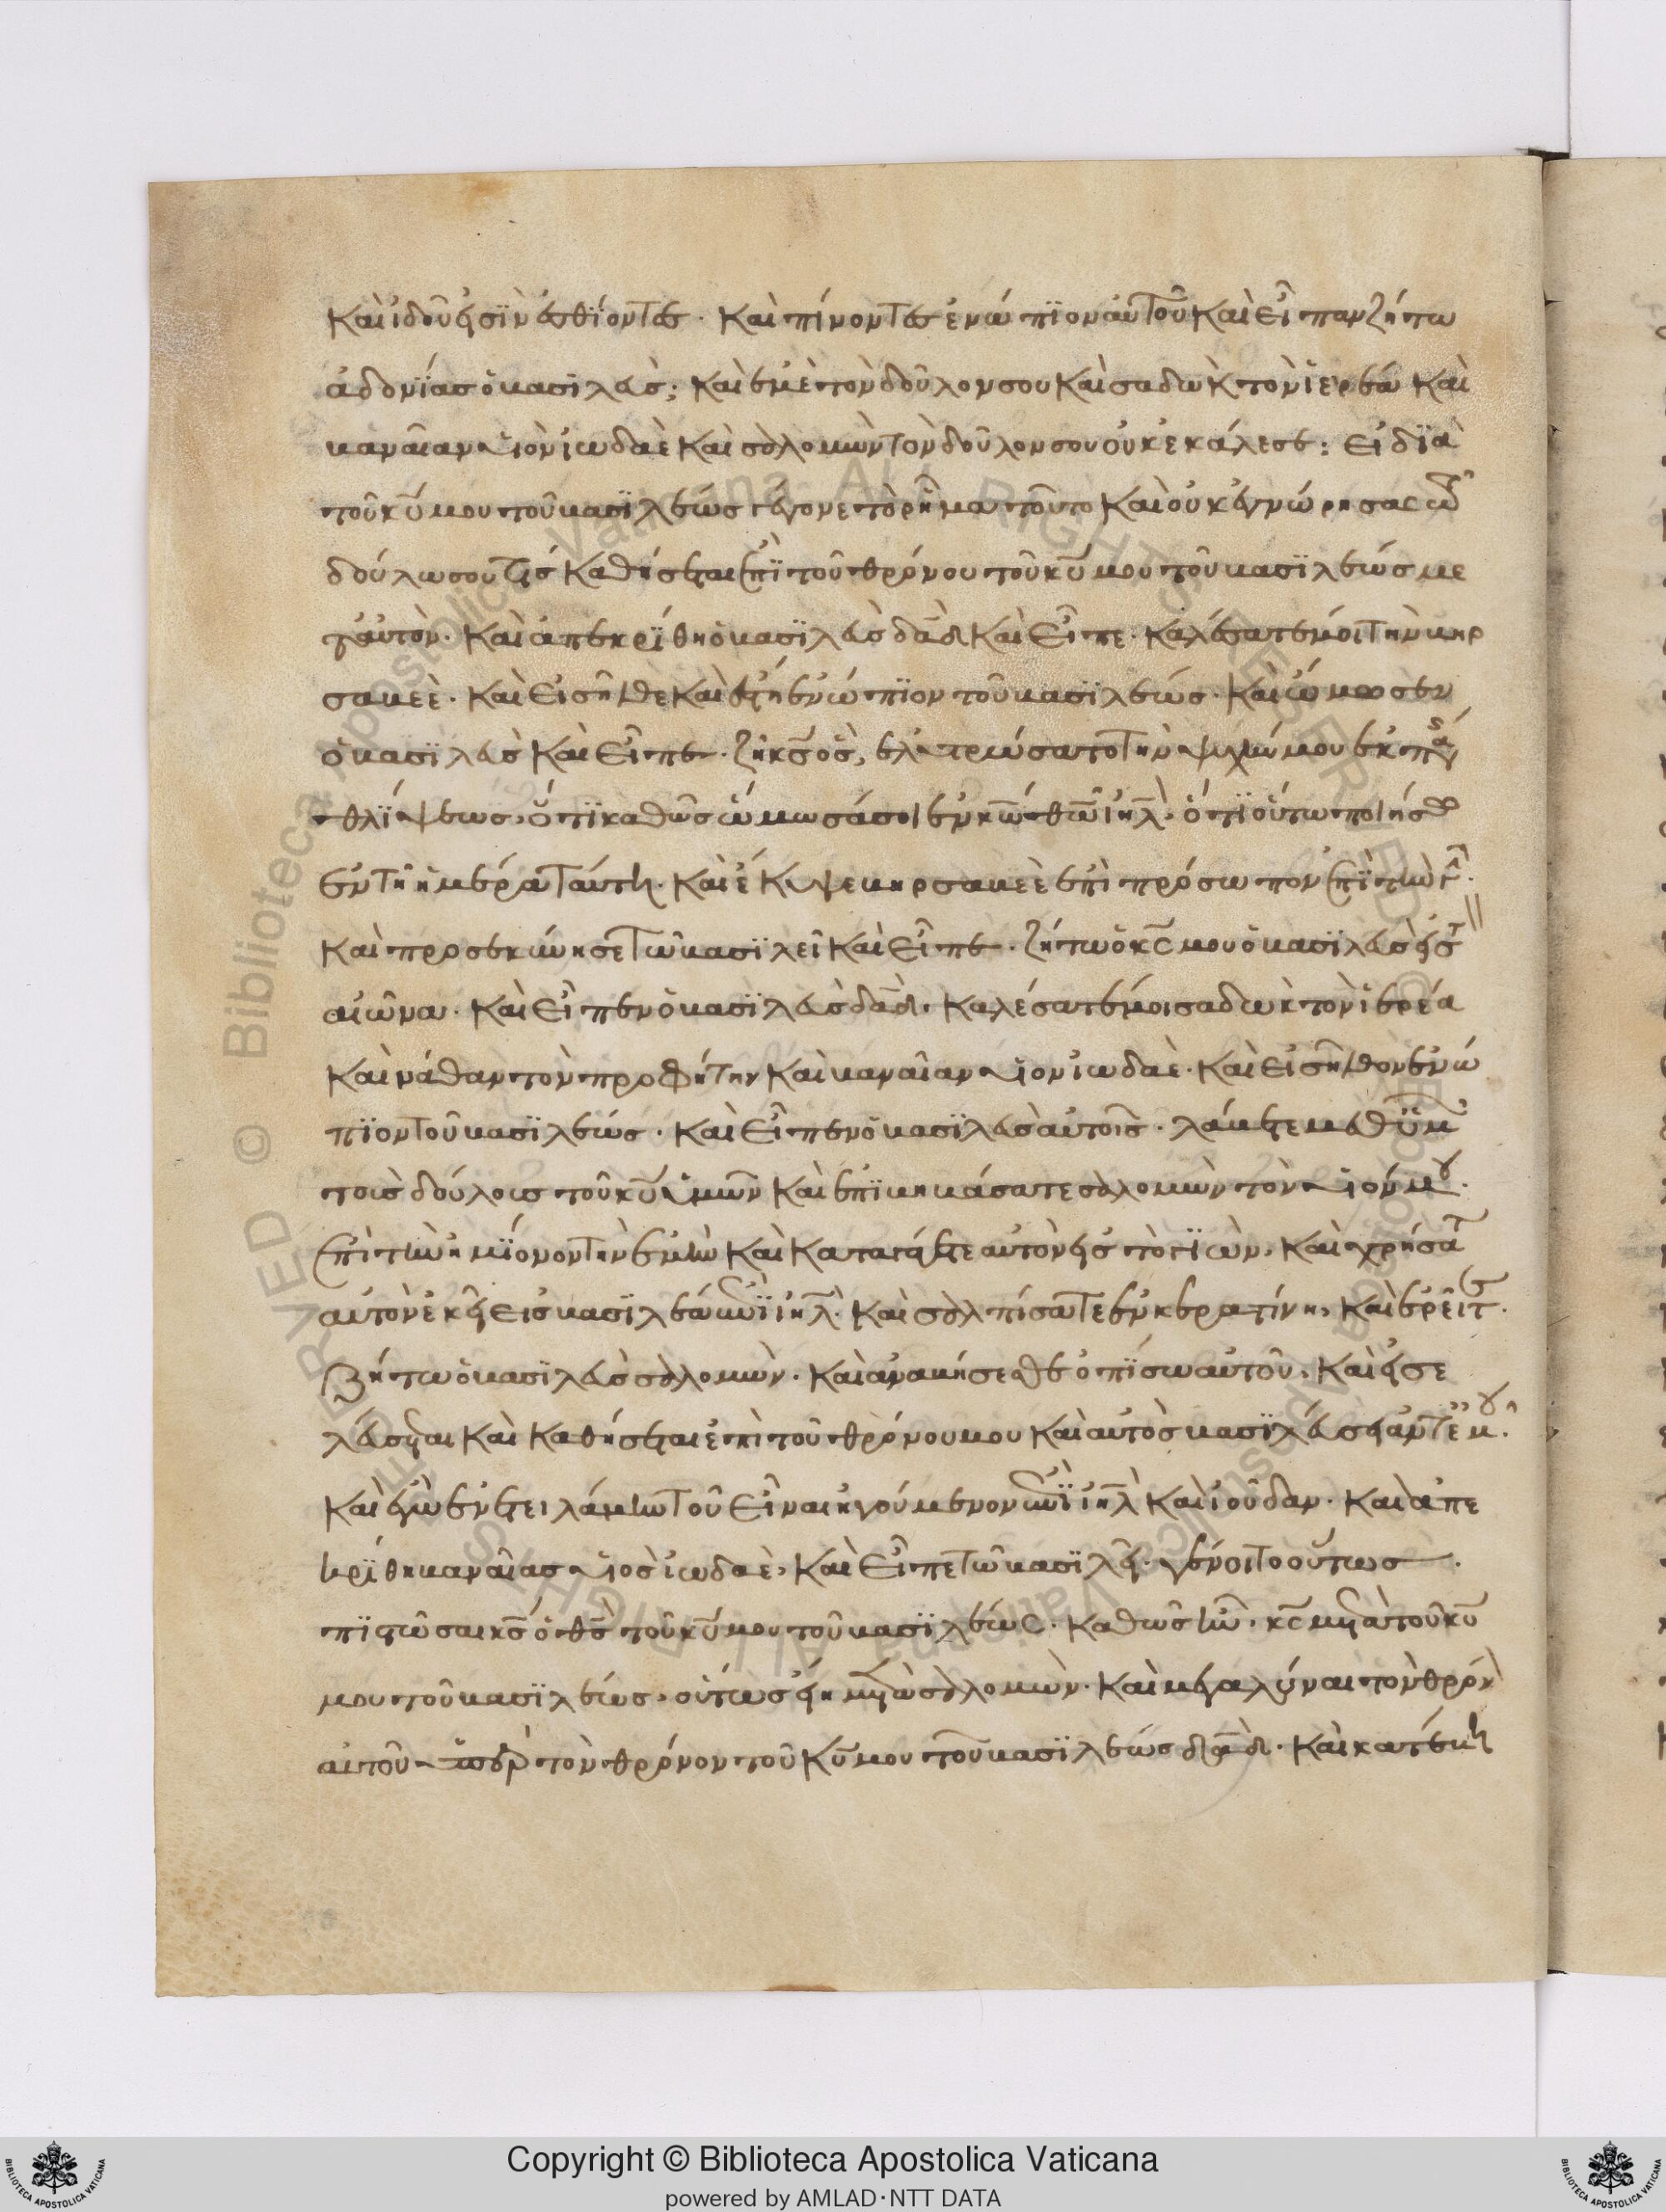 καὶ ἰδοῦ εἰσὶν ἐσθίοντες · καὶ πίνοντες ἐνώπϊον αὐτοῦ καὶ εἶπαν ζήτω
ἀδονίας ὁ βασϊλεὺς; καὶ ἐμὲ τὸν δοῦλον σου καὶ σαδὼκ τὸν ἱερέα καὶ
βαναῖαν υἱὸν ἰωδαὲ καὶ σολομῶν τὸν δοῦλον σου οὐκ ἐκάλεσε: εἰ δϊὰ
τοῦ κ̅υ̅ μου τοῦ βασϊλέως γέγονε τὸ ρῆμα τοῦτο καὶ οὐκ ἐγνώρησας τῶ
δούλω σου τίς καθήσεται ἐπὶ τοῦ θρόνου τοῦ κ̅υ̅ μου τοῦ βασϊλέως με
τ᾽αὐτὸν · καὶ ἀπεκρίθη ὁ βασϊλεὺς δα̅δ̅ καὶ εἶπε · καλέσατέ μοι τὴν βηρ
σαβεὲ · καὶ εἰσῆλθε καὶ ἔστη ἐνώπϊον τοῦ βασϊλέως · καὶ ὤμοσεν
ὁ βασϊλεὺς καὶ εἶπε · ζῆ κ̅ς̅ ὃς, ἐλυτρώσατο τὴν ψυχήν μου ἐκ πάσης
θλίψεως, ὅτϊ καθὼς ὤμωσά σοι ἐν κ̅ω̅ θ̅ω̅ ι̅η̅λ̅ · ὅτϊ οὕτω ποιήσω
ἐν τῆ ἡμέρα ταύτη · καὶ ἔκυψε βηρσαβεὲ ἐπὶ πρόσωπον ἐπὶ τὴν γῆν ·
καὶ προσεκύνησε τῶ βασϊλεῖ καὶ εἶπε · ζήτω ὁ κ̅ς̅ μου ὁ βασϊλεὺς εἰς τ
αἰῶνα · καὶ εἶπεν ὁ βασϊλεὺς δα̅δ̅ · καλέσατέ μοι σαδὼκ τὸν ἱερέα
καὶ νάθαν τὸν προφήτην καὶ βαναῖαν υἱὸν ἰωδαὲ · καὶ εἰσῆλθον ἐνώ
πϊον τοῦ βασϊλέως · καὶ εἶπεν ὁ βασϊλεὺς αὐτοῖς · λάβετε μεθ᾽ ὑμ
τοὺς δούλους τοῦ κ̅υ̅ ὑμῶν καὶ ἐπϊβηβάσατε σολομῶν τὸν υἱόν μου ·
ἐπὶ τὴν ἡμϊονον τὴν ἐμὴν καὶ καταγάγετε αὐτὸν εἰς τὸ γϊὼν, καὶ χρήσατ
αὐτὸν ἐκεῖ εἰς βασϊλέα ἐπὶ ι̅η̅λ̅ · καὶ σαλπίσατε ἐν κερατίνη, καὶ ἐρεῖτε ·
ζήτω ὁ βασϊλεὺς σολομὼν · καὶ ἀναβήσεσθε ὀπίσω αὐτοῦ, καὶ εἰσε
λεύσεται καὶ καθήσεται ἐπὶ τοῦ θρόνου μου καὶ αὐτὸς βασϊλεύσει ἀντ᾽ ἐμοῦ ·
καὶ ἐγὼ ἐνετειλάμην τοῦ εἶναι ἡγούμενον ἐπὶ ι̅η̅λ̅ καὶ ἰοῦδαν · καὶ ἀπε
κρίθη βαναῖας υἱὸς ἰωδαὲ, καὶ εἶπε τῶ βασϊλεῖ · γένοιτο οὕτως ·
πϊστώσαι κ̅ς̅ ὁ θ̅ς̅ τοῦ κ̅υ̅ μου τοῦ βασϊλέως · καθὼς ἦν κ̅ς̅ μετὰ τοῦ κ̅υ̅
μου τοῦ βασϊλέως, οὕτως εἴη μετὰ σολομὼν · καὶ μεγαλύναι τὸν θρόν
αὐτοῦ ὑπὲρ τὸν θρόνον τοῦ κ̅υ̅ μου τοῦ βασϊλέως δα̅δ̅ · καὶ κατέβη
Copyright © Biblioteca Apostolica Vaticana
powered by AMLAD·NTT DATA